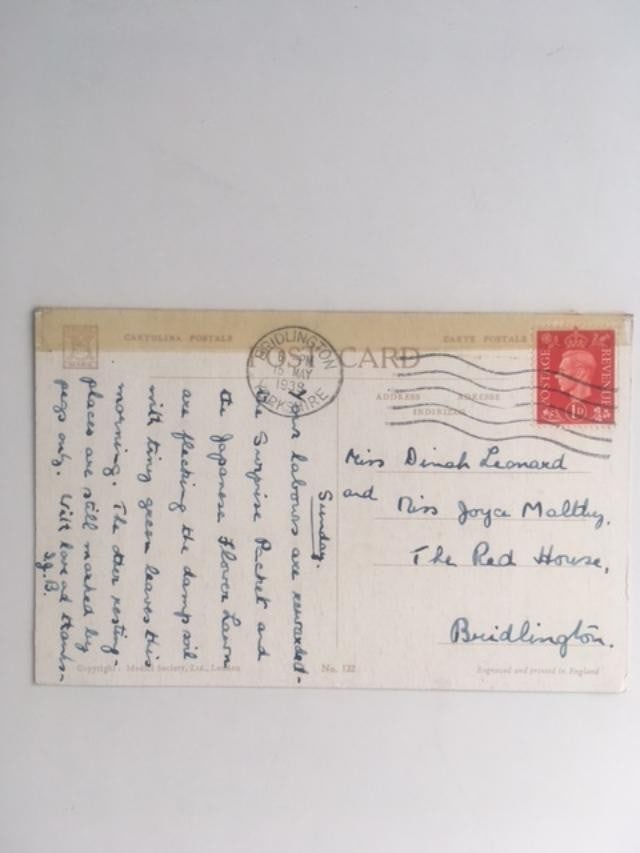 CARTOLINA POSTALE
POST CARD
CARTE POSTALE
ADDRESS ADRESSE
INDIRIZZO
BRIDLINGTON
PM
15 MAY
1938
YORKSHIRE
POSTAGE REVENUE
1D
Miss Dinah Leonard
and Miss Joyce Maltby,
The Red House,
Bridlington.
Sunday.
Your labours are rewarded -
the Surprise Packet and
the Japanese Flower Lawn
are flecking the damp soil
with tiny green leaves this
morning. The other resting-
places are still marked by
pegs only. With love and thanks -
Copyright: Medici Society, Ltd., London
No. 122
Engraved and printed in England